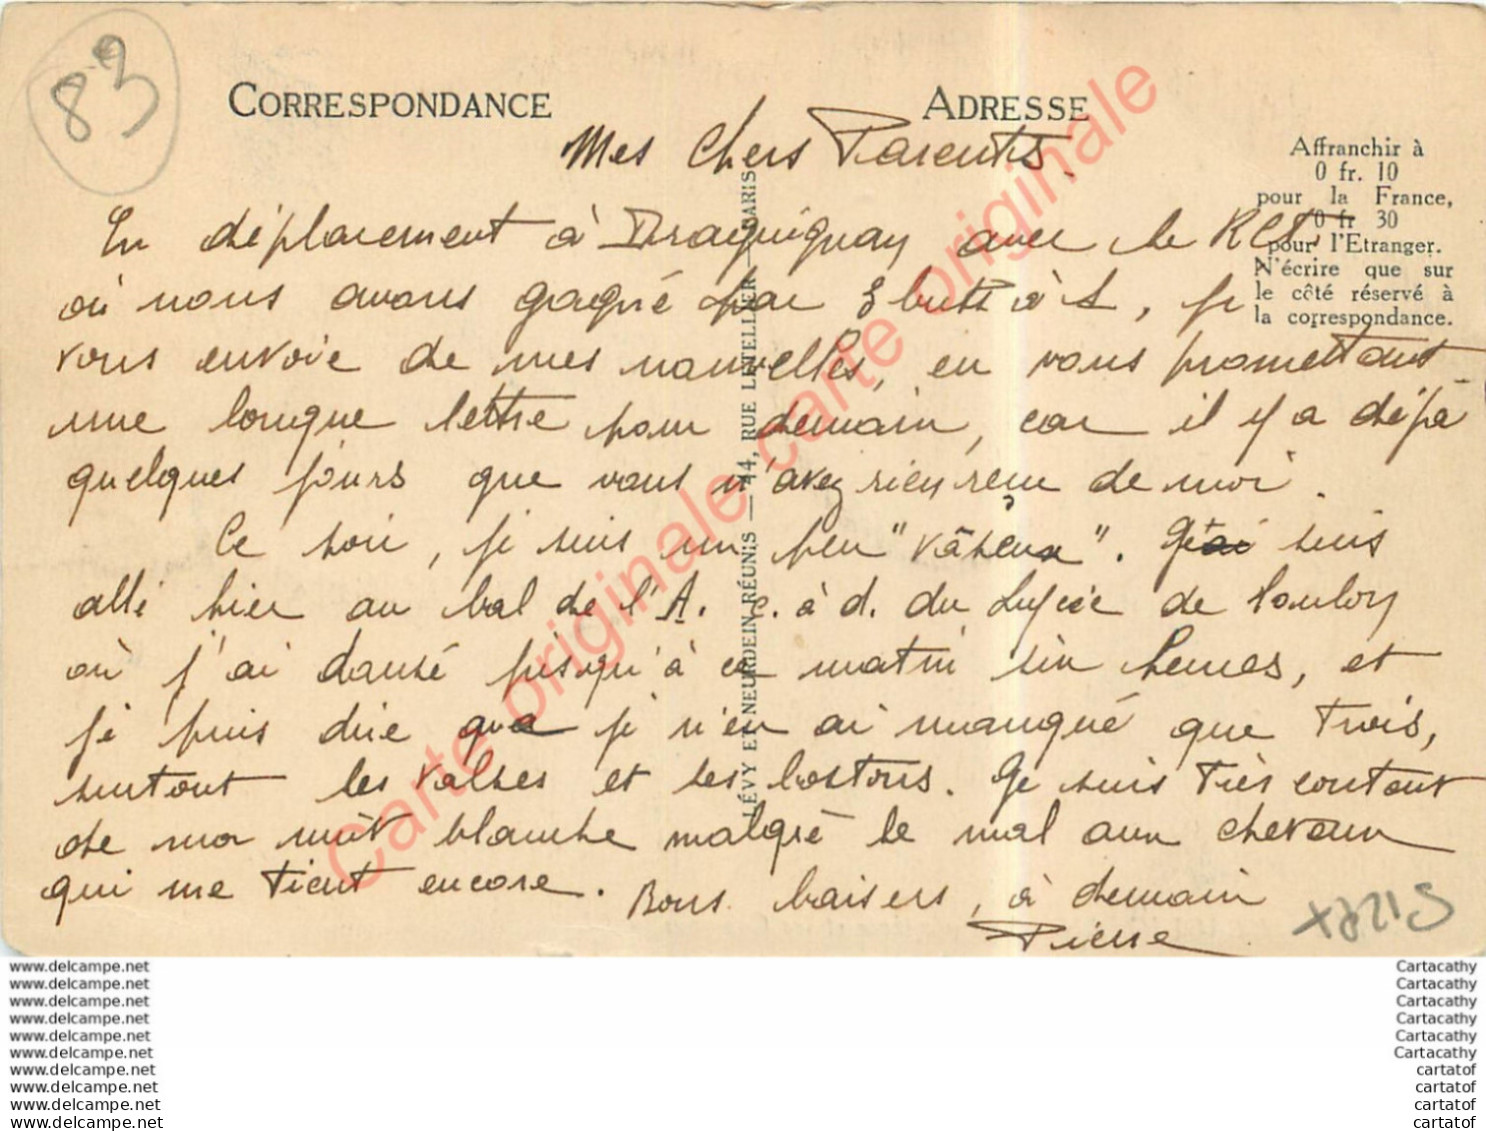 83
CORRESPONDANCE
ADRESSE
Affranchir à
0 fr. 10
pour la France,
0 fr 30
pour l'Etranger.
N'écrire que sur
le côté réservé à
la correspondance.
Mes Chers Parents.
En déplacement à Draguignan avec le RCT
où nous avons gagné par 3 buts à 1, je
vous envoie de mes nouvelles, en vous promettant
une longue lettre pour demain, car il y a déjà
quelques jours que vous n'avez rien reçu de moi.
Ce soir, je suis un peu "vaseux". J'ai suis
allé hier au bal de l'A. c. à d. du Lycée de Toulon
où j'ai dansé jusqu'à ce matin six heures, et
je puis dire que je n'en ai manqué que trois,
surtout les valses et les bostons. Je suis très content
de ma nuit blanche malgré le mal aux cheveux
qui me tient encore. Bons baisers, à demain
Pierre
LÉVY ET NEURDEIN RÉUNIS — 44, RUE LETELLIER — PARIS
Carte originale carte originale
www.delcampe.net
www.delcampe.net
www.delcampe.net
www.delcampe.net
www.delcampe.net
www.delcampe.net
www.delcampe.net
www.delcampe.net
www.delcampe.net
www.delcampe.net
Cartacathy
Cartacathy
Cartacathy
Cartacathy
Cartacathy
Cartacathy
cartatof
cartatof
cartatof
cartatof